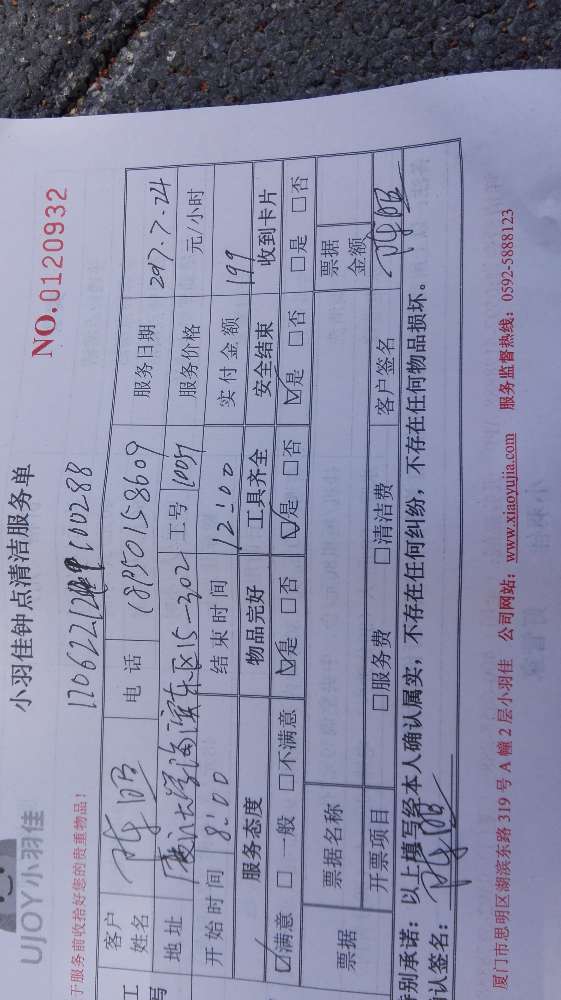 UJOY小羽佳
小羽佳钟点清洁服务单
NO.0120932
于服务前收拾好您的贵重物品!
客户姓名 电话 18950158609 服务日期 2017.7.24
地址 厦门大学海滨东区15-302 工号 服务价格 元/小时
开始时间 8:00 结束时间 12:00 实付金额 199
服务态度 物品完好 工具齐全 安全结束 收到卡片
☑满意 □一般 □不满意 ☑是 □否 ☑是 □否 ☑是 □否 □是 □否
票据 票据名称 票据金额
开票项目 □服务费 □清洁费 客户签名
特别承诺:以上填写经本人确认属实,不存在任何纠纷,不存在任何物品损坏。
确认签名:
厦门市思明区湖滨东路 319 号 A 幢 2 层小羽佳 公司网站:www.xiaoyujia.com 服务监督热线:0592-5888123